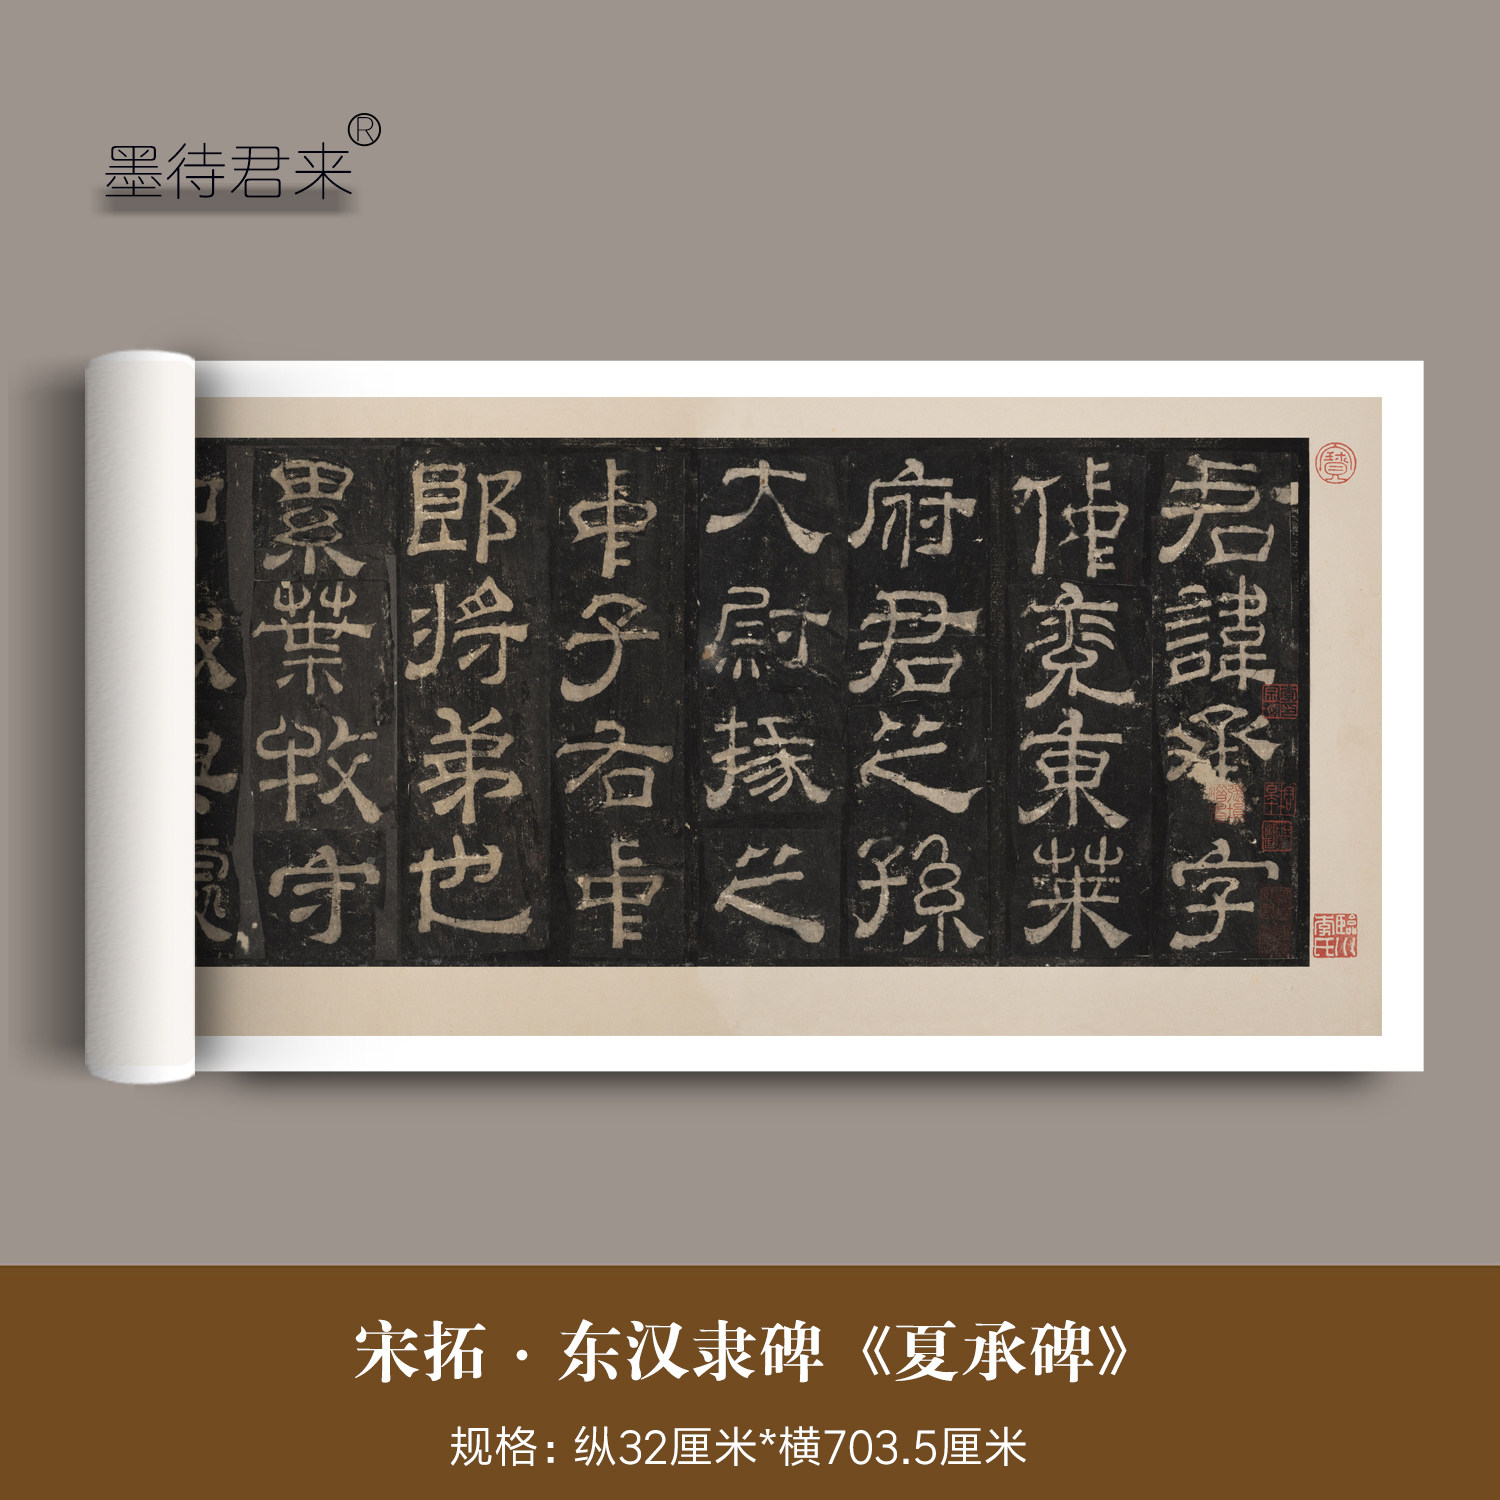 墨待君来®
君諱承字
仲兖東萊
府君之孫
大尉掾之
中子右中
郎将弟也
累葉牧守
寶
臨川李氏
宋拓·东汉隶碑《夏承碑》
规格：纵32厘米*横703.5厘米